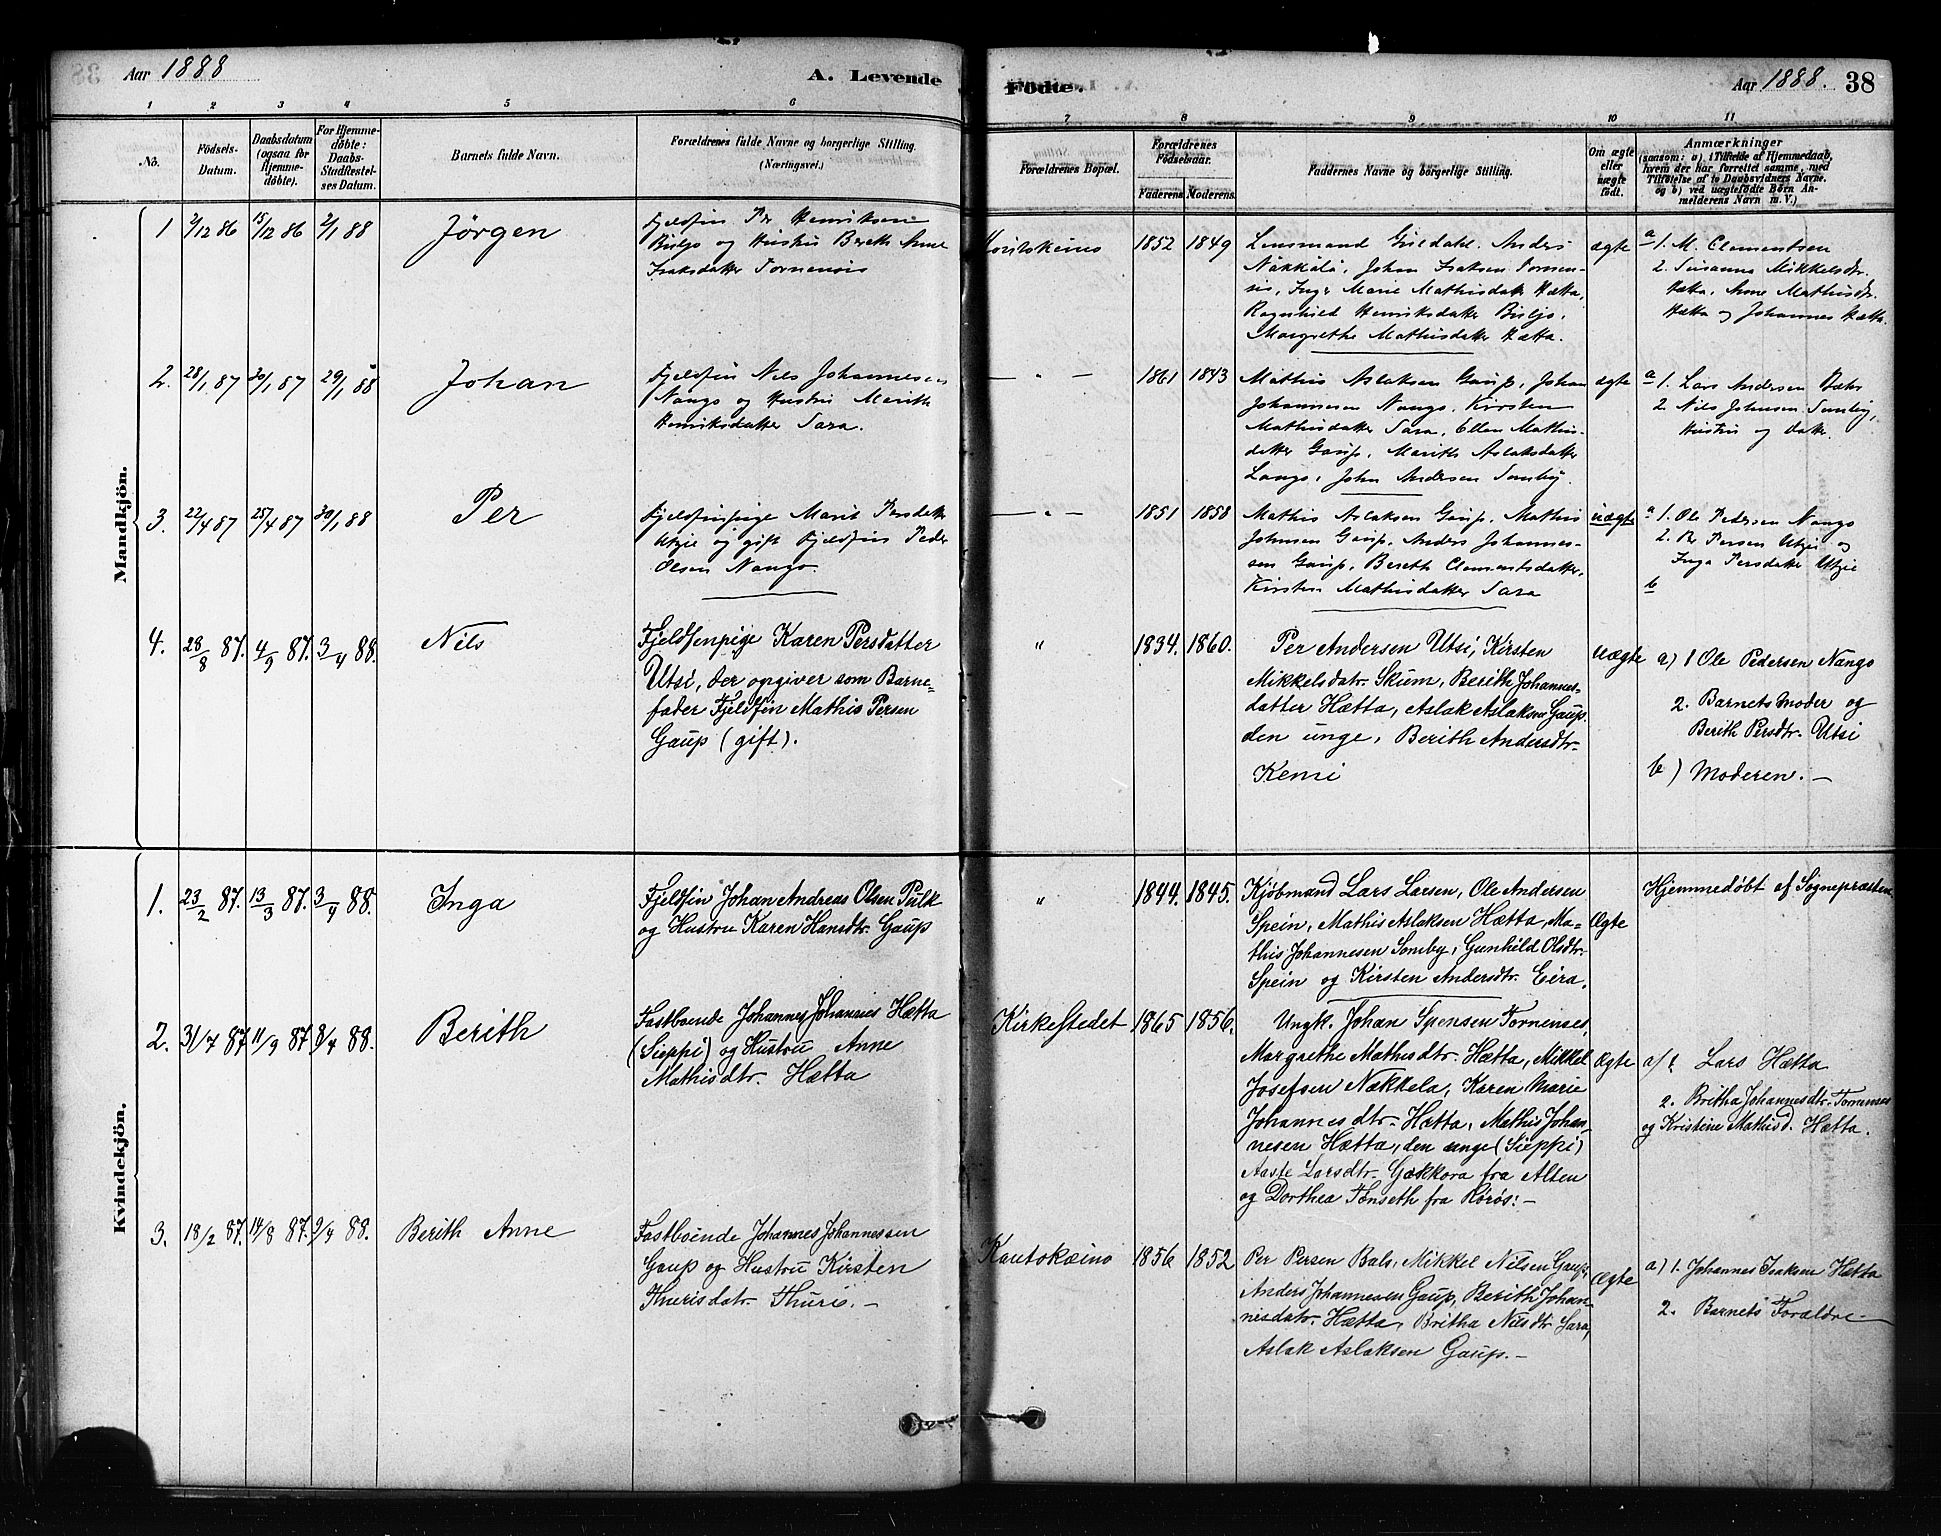 Aar 1888
A. Levende
Födte.
Aar 1888.
38
1
2
3
4
5
6
7
8
9
10
11
No.
Födsels-
Datum.
Daabsdatum
(ogsaa for
Hjemme-
döbte).
For Hjemme-
döbte:
Daabs-
Stadfæstel-
ses Datum.
Barnets fulde Navn.
Forældrenes fulde Navne og borgerlige Stilling.
(Næringsvei.)
Forældrenes Bopæl.
Forældrenes
Födselsaar.
Faderens
Moderens
Faddernes Navne og borgerlige Stilling.
Om ægte
eller
uægte
født.
Anmærkninger
(saasom: a) i Tilfælde af Hjemmedaab,
hvem der har forrettet samme, med
Tilføielse af to Daabsvidners Navne.
og b) ved uægtefødte Börn An-
melderens Navn m.V.)
Mandkjön.
1
2/12 86
15/12 86
2/1 88
Jörgen
Fjeldfin Per Henriksen
Buljo og Hustru Berith Anne
Isaksdatter Tornensis
Koutokeino
1852
1849
Lensmand Guldahl. Anders
Näkkälä, Johan Isaksen Tornen-
sis, Inger Marie Mathisdatter Hætta,
Ragnhild Henriksdatter Buljo,
Margrethe Mathisdatter Hætta.
ægte
a 1. M. Clementsen
2. Susanna Mikkelsdtr.
Hætta, Anne Mathisdtr.
Hætta og Johannes Hætta.
2.
28/1 87
30/1 87
29/1 88
Johan
Fjeldfin Nils Johannesen
Nango og Hustru Marith
Henriksdatter Sara.
— " —
1861
1843
Mathis Aslaksen Gaup, Johan
Johannesen Nango, Kirsten
Mathisdatter Sara, Ellen Mathis-
datter Gaup, Marith Aslaksdatter
Lango, John Andersen Somby.
ægte
a 1. Lars Andersen Bæhr
2. Nils Johnsen Somby,
Hustru og datter.
3.
22/4 87
25/4 87
30/1 88
Per
Fjeldfinpige Marit Persdatter
Utzie og gift Fjeldfin Peder
Olsen Nango
— " —
1851
1858
Mathis Aslaksen Gaup, Mathis
Johnsen Gaup, Anders Johannes-
sen Gaup, Bereth Clementsdatter,
Kirsten Mathisdatter Sara
uægte
a 1. Ole Pedersen Nango
2. Per Persen Utzie og
Inga Persdatter Utzie
b
4.
28/8 87.
4/9 87.
3/4 88.
Nils
Fjeldfenpige Karen Persdatter
Utsi, der opgiver som Barne-
fader Fjeldfin Mathis Persen
Gaup (gift).
"
1834.
1860.
Per Andersen Utsi, Kirsten
Mikkelsdatr. Skum, Berith Johannes-
datter Hætta, Aslak Aslaksen Gaup
den unge, Berith Andersdtr.
Kemi
Uægte
a) 1 Ole Pedersen Nango
2. Barnets Moder og
Berith Persdtr. Utsi
b) Moderen. —
Kvindekjön.
1.
23/2 87.
13/3 87.
3/4 88.
Inga
Fjeldfin Johan Andreas Olsen Pulk
og Hustru Karen Hansdtr. Gaup
"
1844.
1845.
Kjöbmand Lars Larsen, Ole Andersen
Spein, Mathis Aslaksen Hætta, Ma-
this Johannesen Somby, Gunhild Olsdtr.
Spein og Kirsten Andersdtr. Eira.
Ægte
Hjemmedøbt af Sognepræsten.
2.
31/7 87
11/9 87.
8/4 88.
Berith
Fastboende Johannes Johannes Hætta
(Sieppi) og Hustru Anne
Mathisdtr. Hætta
Kirkestedet
1865
1856.
Ungk. Johan Spensen Tornenses,
Margrethe Mathisdtr. Hætta, Mikkel
Josefsen Nækkela, Karen Marie
Johannesdtr. Hætta, Mathis Johan-
nesen Hætta, den unge (Sieppi)
Aaste Larsdtr. Gækkora fra Alten
og Dorthea Tønseth fra Röros: —
Ægte
a) 1. Lars Hætta
2. Britha Johannesdtr. Tornenses
og Kristine Mathisd. Hætta.
3.
18/2 87.
14/8 87.
9/4 88.
Berith Anne
Fastboende Johannes Johannessen
Gaup og Hustru Kirsten
Thurisdatr. Thuri. —
Kautokeino
1856
1852
Per Persen Bals, Mikkel Nilsen Gaup,
Anders Johannesen Gaup, Berith Johan-
nesdatr. Hætta, Britha Nilsdtr. Sara,
Aslak Aslaksen Gaup. —
Ægte
a) 1. Johannes Isaksen Hætta
2. Barnets Forældre